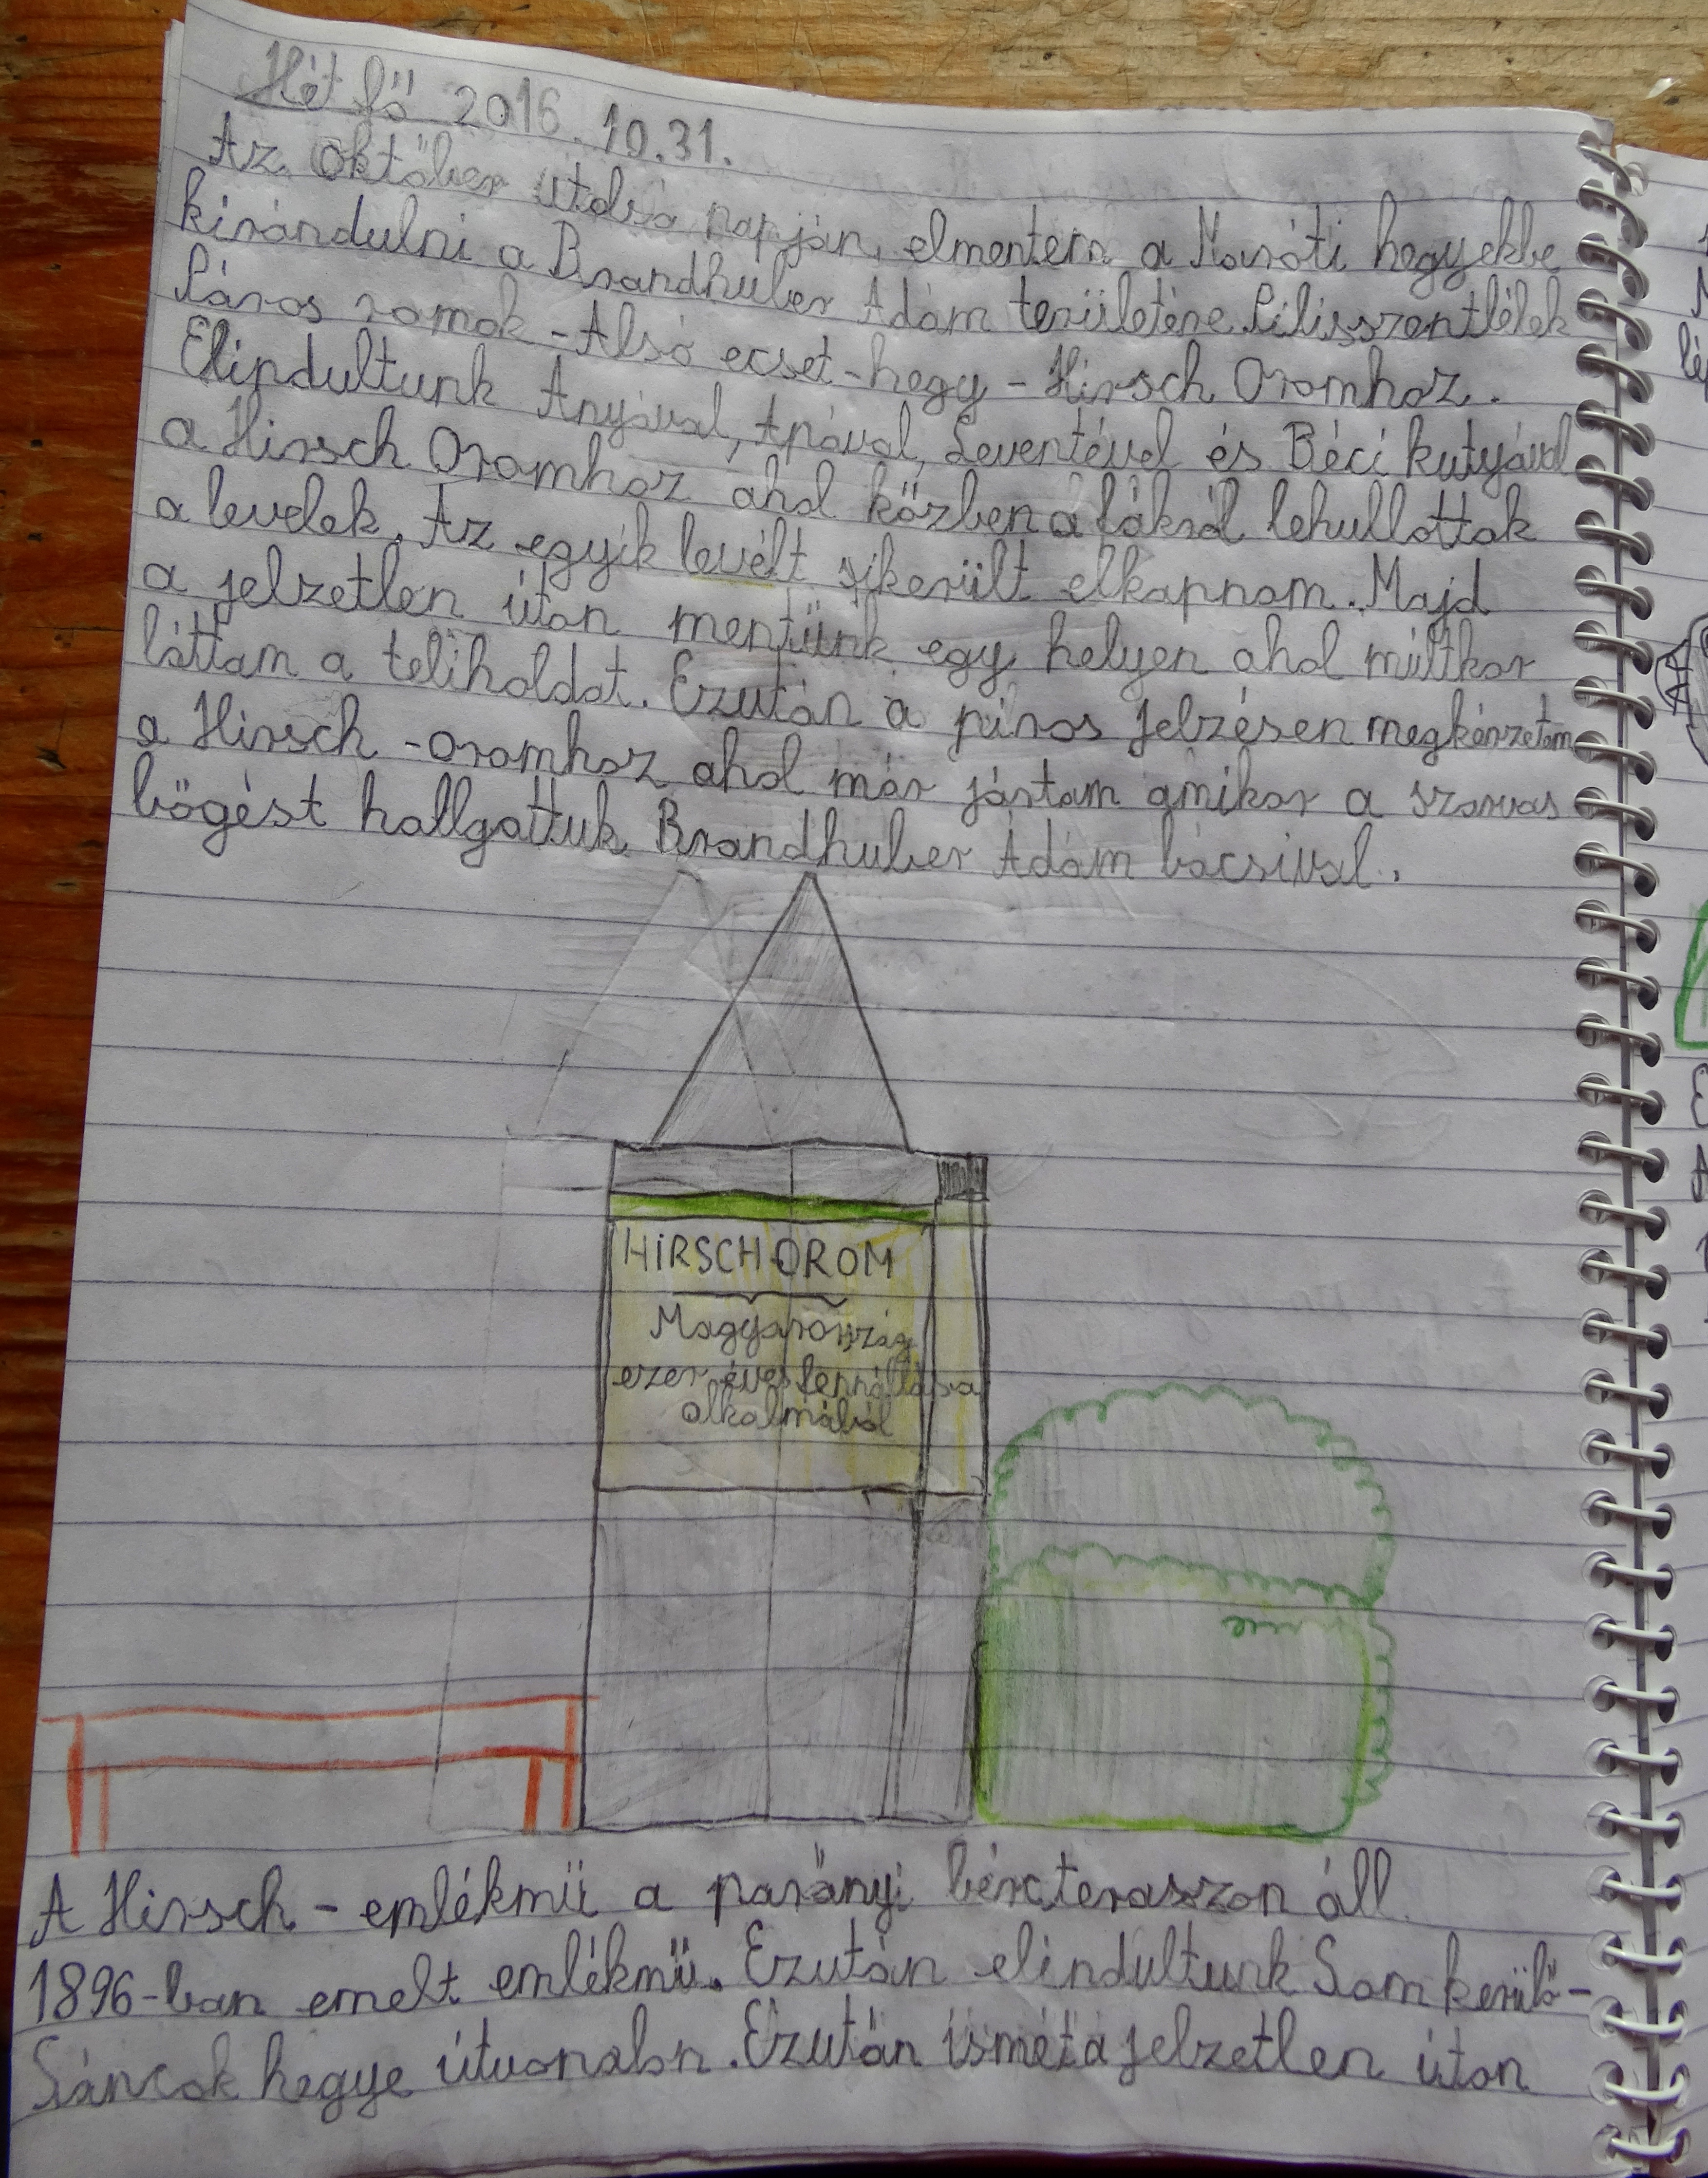 Hétfő 2016. 10.31.
Az október utolsó napján, elmentem a Maróti hegyekbe
kirándulni a Brandhuber Ádám területére. Pilisszentlélek
Páros romok - Alsó ecset-hegy - Hirsch Oromhoz.
Elindultunk Anyával, Apával, Leventével és Béci kutyával
a Hirsch Oromhoz ahol közben a fákról lehullottak
a levelek. Az egyik levélt sikerült elkapnom. Majd
a jelzetlen úton mentünk egy helyen ahol múltkor
láttam a teliholdat. Ezután a piros jelzésen megkérzetem
a Hirsch-oromhoz ahol már jártam amikor a szarvas
bőgést hallgattuk Brandhuber Ádám bácsival.
HIRSCH OROM
Magyarország
ezer éves fennállása
alkalmából
A Hirsch - emlékmű a parányi bércteraszon áll.
1896-ban emelt emlékmű. Ezután elindultunk Som kerülő-
Sáncok hegye útvonalon. Ezután ismét a jelzetlen úton